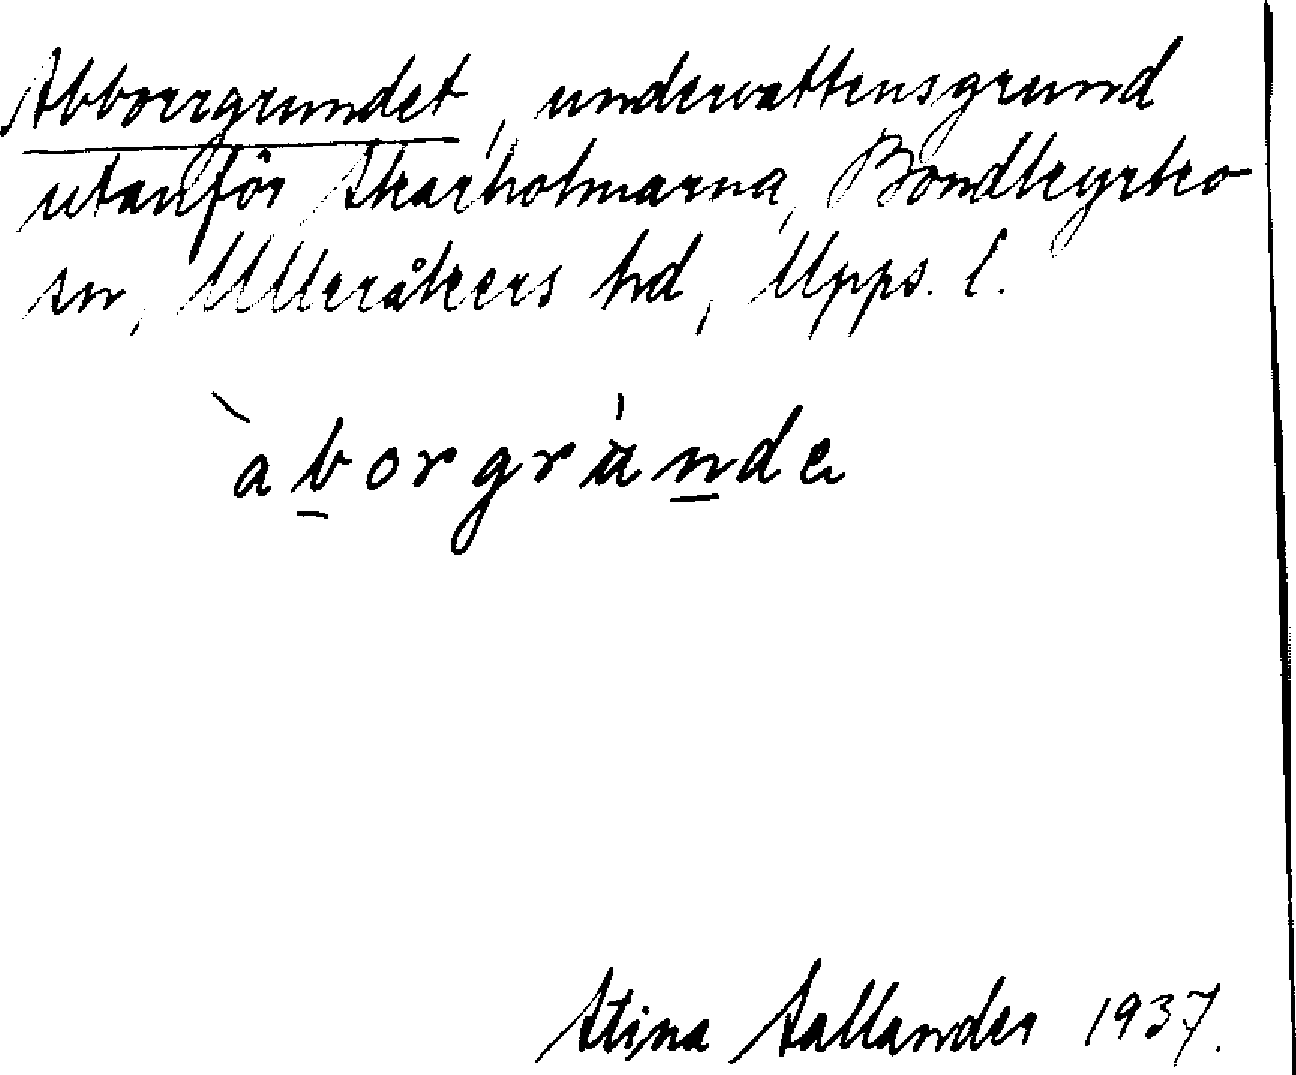 Abborrgrundet, undervattensgrund
utanför Skarholmarna, Bondkyrko
sn, Ulleråkers hd, Upps. l.
`aborgrànde
Stina Sallander 1937.